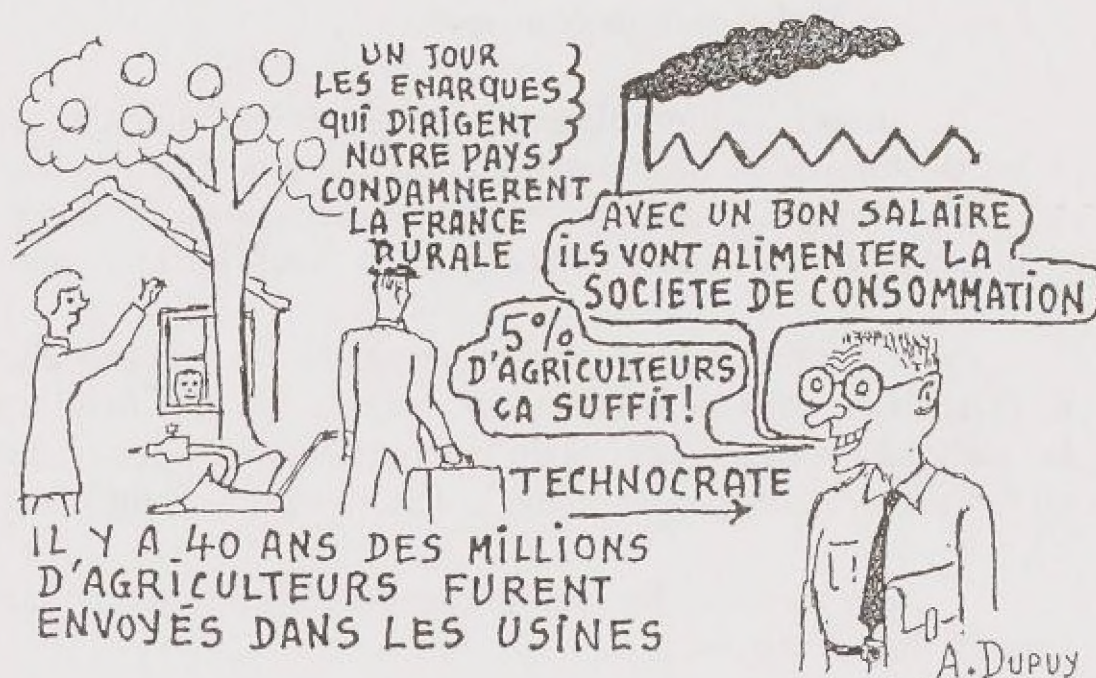 UN JOUR
LES ENARQUES
QUI DIRIGENT
NOTRE PAYS
CONDAMNERENT
LA FRANCE
RURALE
AVEC UN BON SALAIRE
ILS VONT ALIMENTER LA
SOCIETE DE CONSOMMATION
5%
D'AGRICULTEURS
CA SUFFIT!
TECHNOCRATE
IL Y A 40 ANS DES MILLIONS
D'AGRICULTEURS FURENT
ENVOYÉS DANS LES USINES
A. DUPUY